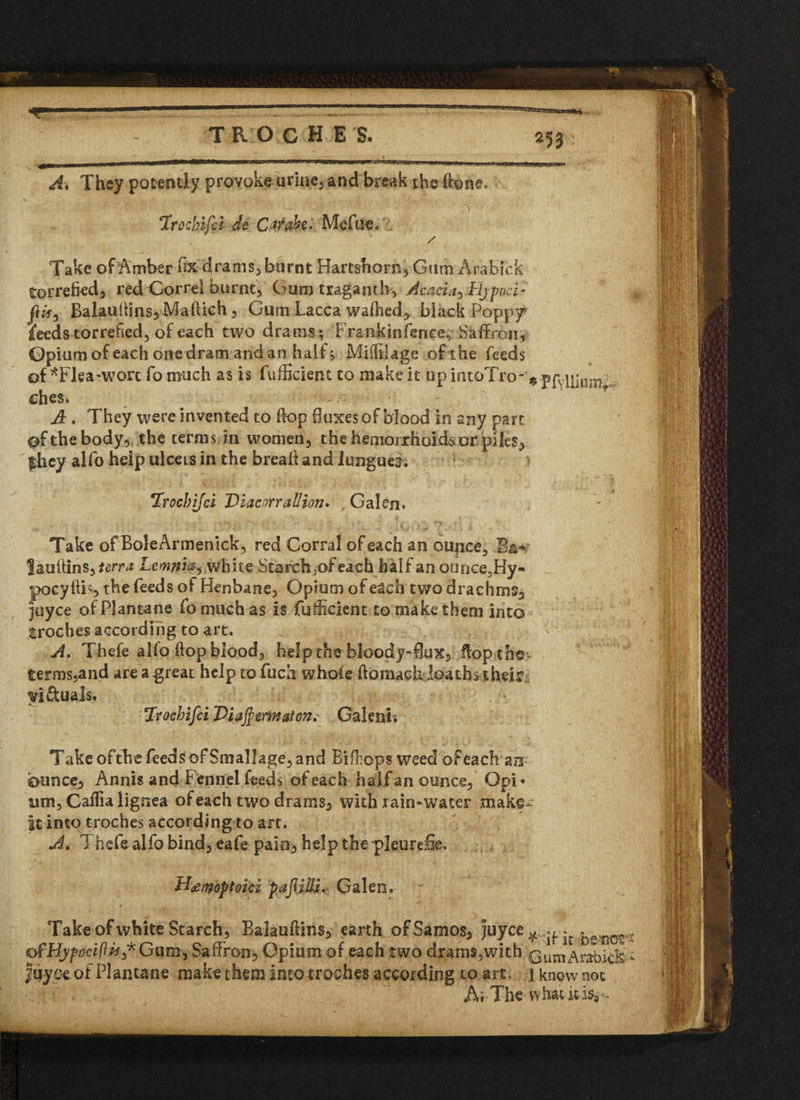 TROCHES. 253
A. They potently provoke urine, and break the ſtone.
Trochiſci de Carabe. Meſue.
Take of Amber ſix drams, burnt Hartshorn, Gum Arabick
torrefied, red Correl burnt, Gum traganth, Acacia, Hypoci-
ſtis, Balauſtins, Maſtich, Gum Lacca waſhed, black Poppy
ſeeds torrefied, of each two drams; Frankinſence, Saffron,
Opium of each one dram and an half; Miſſilage of the ſeeds
of *Flea-wort ſo much as is ſufficient to make it up into Tro- * Pſyllium.
ches.
A. They were invented to ſtop fluxes of blood in any part
of the body, the terms in women, the hemorrhoids or piles,
they alſo help ulcers in the breaſt and lungues.
Trochiſci Diacorrallion. Galen.
Take of Bole Armenick, red Corral of each an ounce, Ba-
lauſtins, terra Lemnia, white Starch, of each half an ounce, Hy-
pocyſtis, the ſeeds of Henbane, Opium of each two drachms,
juyce of Plantane ſo much as is ſufficient to make them into
troches according to art.
A. Theſe alſo ſtop blood, help the bloody-flux, ſtop the
terms, and are a great help to ſuch whoſe ſtomach loaths their
victuals.
Trochiſci Diaſpermaton. Galeni.
Take of the ſeeds of Smallage, and Biſhops weed of each an
ounce, Annis and Fennel ſeeds of each half an ounce, Opi-
um, Caſſia lignea of each two drams, with rain-water make
it into troches according to art.
A. Theſe alſo bind, eaſe pain, help the pleureſie.
Hæmoptoici paſtilli. Galen.
Take of white Starch, Balauſtins, earth of Samos, juyce * if it be not
of Hypociſtis,* Gum, Saffron, Opium of each two drams, with Gum Arabick
juyce of Plantane make them into troches according to art. I know not
A. The what it is,